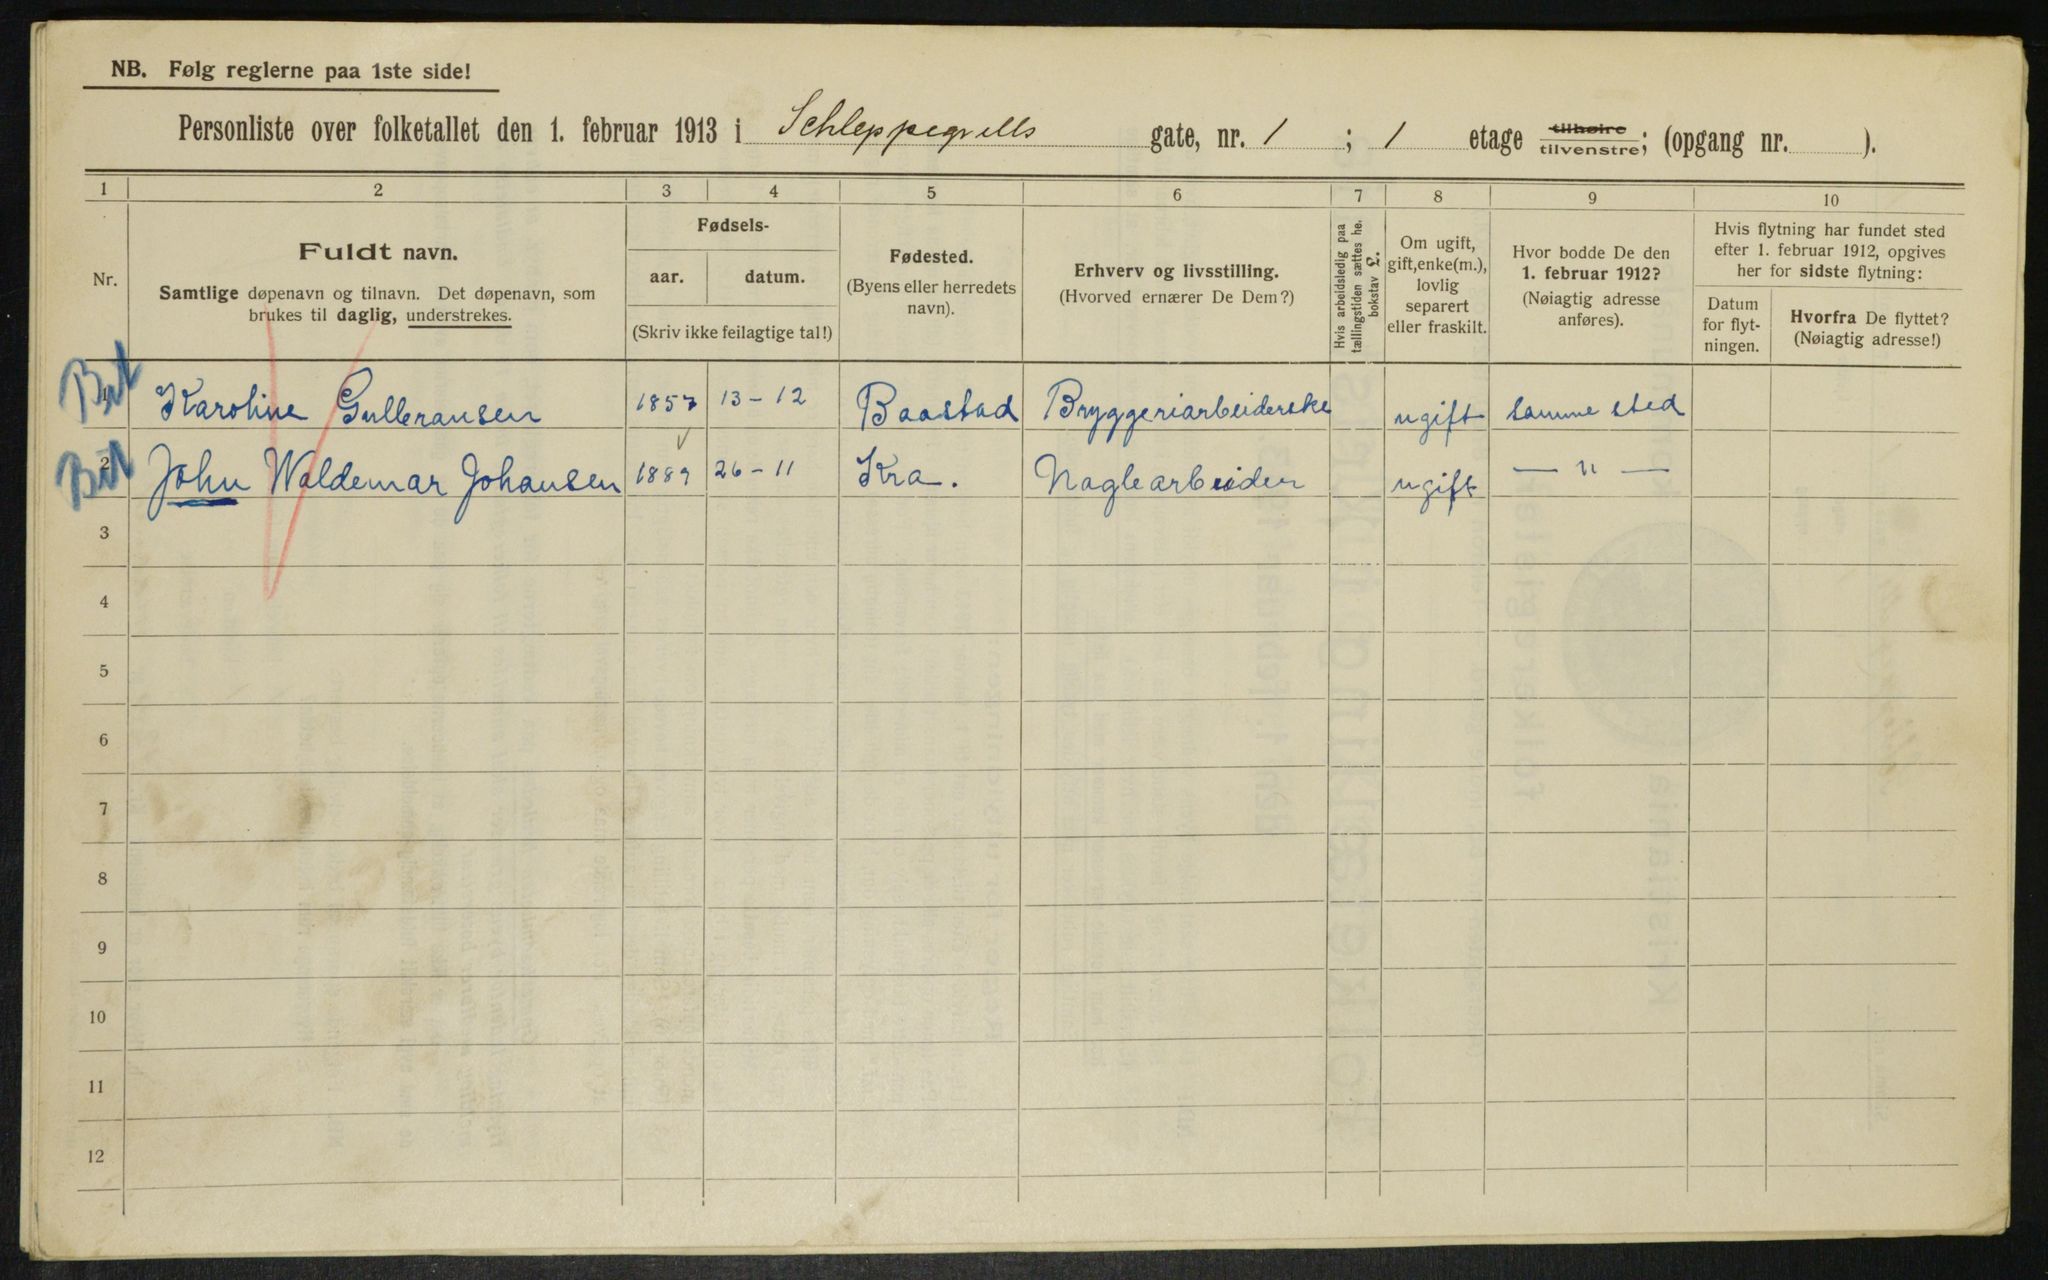 NB. Følg reglerne paa 1ste side!
Personliste over folketallet den 1. februar 1913 i Schleppegrells gate, nr. 1 ; 1 etage tilhøire tilvenstre; (opgang nr. ).
1 2 3 4 5 6 7 8 9 10
Nr.
Fuldt navn.
Samtlige døpenavn og tilnavn. Det døpenavn, som
brukes til daglig, understrekes.
Fødsels-
aar. datum.
(Skriv ikke feilagtige tal!)
Fødested.
(Byens eller herredets
navn).
Erhverv og livsstilling.
(Hvorved ernærer De Dem?)
Hvis arbeidsledig paa
tællingstiden sættes he.
bokstav L.
Om ugift,
gift, enke(m.),
lovlig
separert
eller fraskilt.
Hvor bodde De den
1. februar 1912?
(Nøiagtig adresse
anføres).
Hvis flytning har fundet sted
efter 1. februar 1912, opgives
her for sidste flytning:
Datum
for flyt-
ningen.
Hvorfra De flyttet?
(Nøiagtig adresse!)
1 Karoline Gulleransen 1857 13-12 Baastad Bryggeriarbeiderske ugift Samme sted
2 John Waldemar Johansen 1889 26-11 Kra. Naglearbeider ugift — " —
3
4
5
6
7
8
9
10
11
12